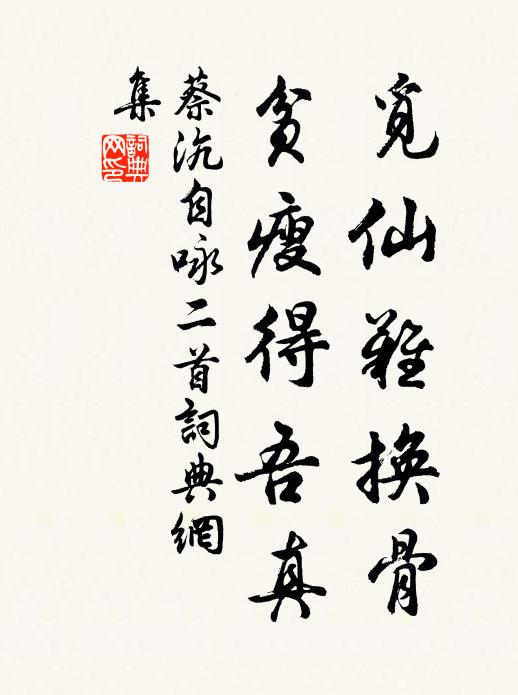 覓仙難換骨
貧瘦得吾真
蔡沉自咏二首詞典網
集
詞典
网印